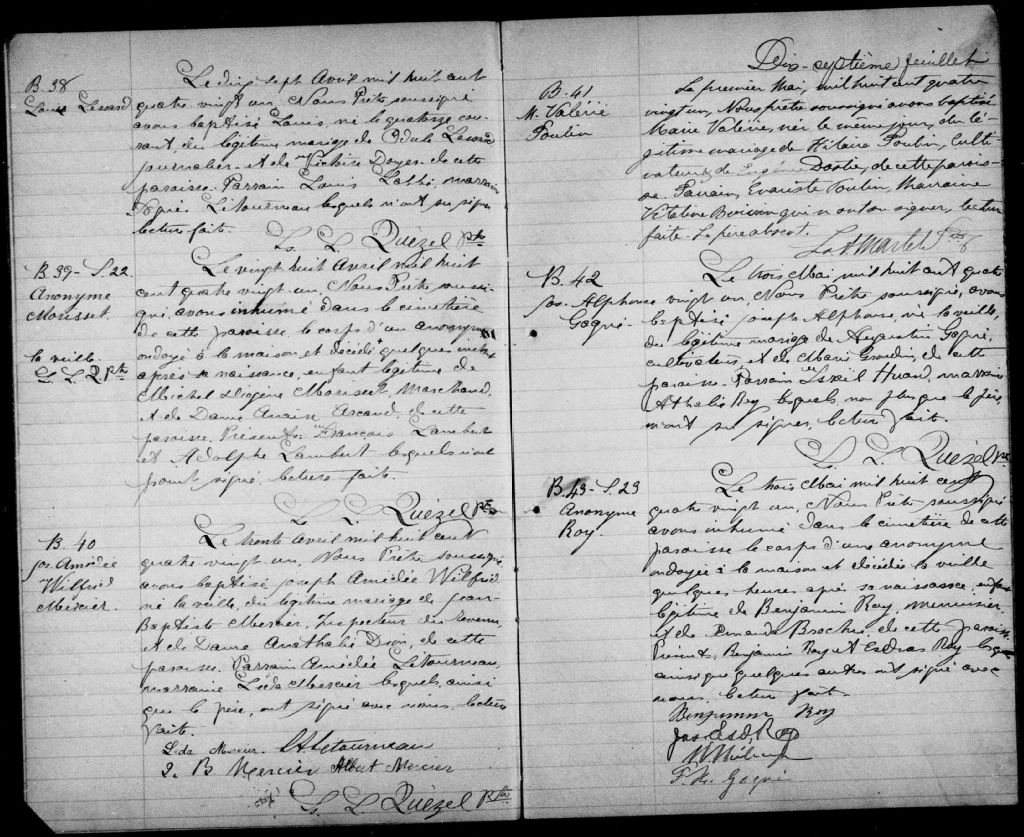 B. 38
Louis Lessard
Le dix sept Avril mil huit cent
quatre vingt un, Nous Prêtre soussigné
avons baptisé Louis, né le quatorze cou-
rant, du légitime mariage de Odule Lessard
journalier et de Victoire Doyer de cette
paroisse. Parrain Louis marraine
Létourneau lesquels n'ont su signer
lecture faite.
L. L. Quézel Ptre
B. 39 - S. 22
Anonyme
Morisset
la veille
L. L. Q Ptr
Le vingt huit Avril mil huit
cent quatre vingt un, Nous Prêtre soussi-
gné, avons inhumé dans le cimetière
de cette paroisse le corps d'un anonyme
ondoyé à la maison et décédé + quelques
après sa naissance, enfant légitime de
Michel Diogène Morisset, Marchand,
et de Dame Anaïse Arcand, de cette
paroisse. Présents: François Lambert
et Adolphe Lambert lesquels n'ont
point signé, lecture faite.
L. L. Quézel Ptre
B. 40
Jos. Amédée
Wilfrid
Mercier.
Le trente Avril mil huit cent
quatre vingt un, Nous Prêtre soussigné,
avons baptisé Joseph Amédée Wilfrid
né la veille, du légitime mariage de Jean-
Baptiste Mercier, Inspecteur du Revenu,
et de Dame Anathalie Dion, de cette
paroisse. Parrain Amédée Létourneau,
marraine Léda Mercier lesquels, ainsi
que le père, ont signé avec nous, lecture
faite.
Léda Mercier. Létourneau
J. B Mercier Albert Mercier
L. L. Quézel Ptre
Dix-septième feuillet
B. 41
M. Valérie
Poulin
Le premier Mai, mil huit cent quatre
vingt un, Nous prêtre soussigné avons baptisé
Marie Valérie, née le même jour, du lé-
gitime mariage de Hilaire Poulin, Culti-
vateur, et de Eugénie Dostie, de cette parois-
se. Parrain, Evariste Poulin, Marraine
qui n'ont su signer, lecture
faite. Le père absent.
Martel Ptre
B. 42
Jos. Alphonse
Gagné.
Le trois Mai mil huit cent quatre
vingt un, Nous Prêtre soussigné, avons
baptisé Joseph Alphonse, né la veille,
du légitime mariage de Augustin Gagné,
cultivateur, et de Marie Grondin, de cette
paroisse. Parrain Israël Huard, marraine
Athalie Roy lesquels, non plus que le père,
n'ont su signer, lecture faite.
L. L. Quézel Ptre
B. 43 - S. 23
Anonyme
Roy.
Le trois Mai mil huit cent
quatre vingt un, Nous Prêtre soussigné
avons inhumé dans le cimetière de cette
paroisse le corps d'une anonyme
ondoyée à la maison et décédée la veille
quelques heures après sa naissance, enfant
légitime de Benjamin Roy, menuisier
et de Amanda Brochu, de cette paroisse.
Présents, Benjamin Roy et Esdras Roy lesquels
ainsi que quelques autres ont signé avec
nous, lecture faite.
Benjamin Roy
Jos Esd. Roy
Gagné